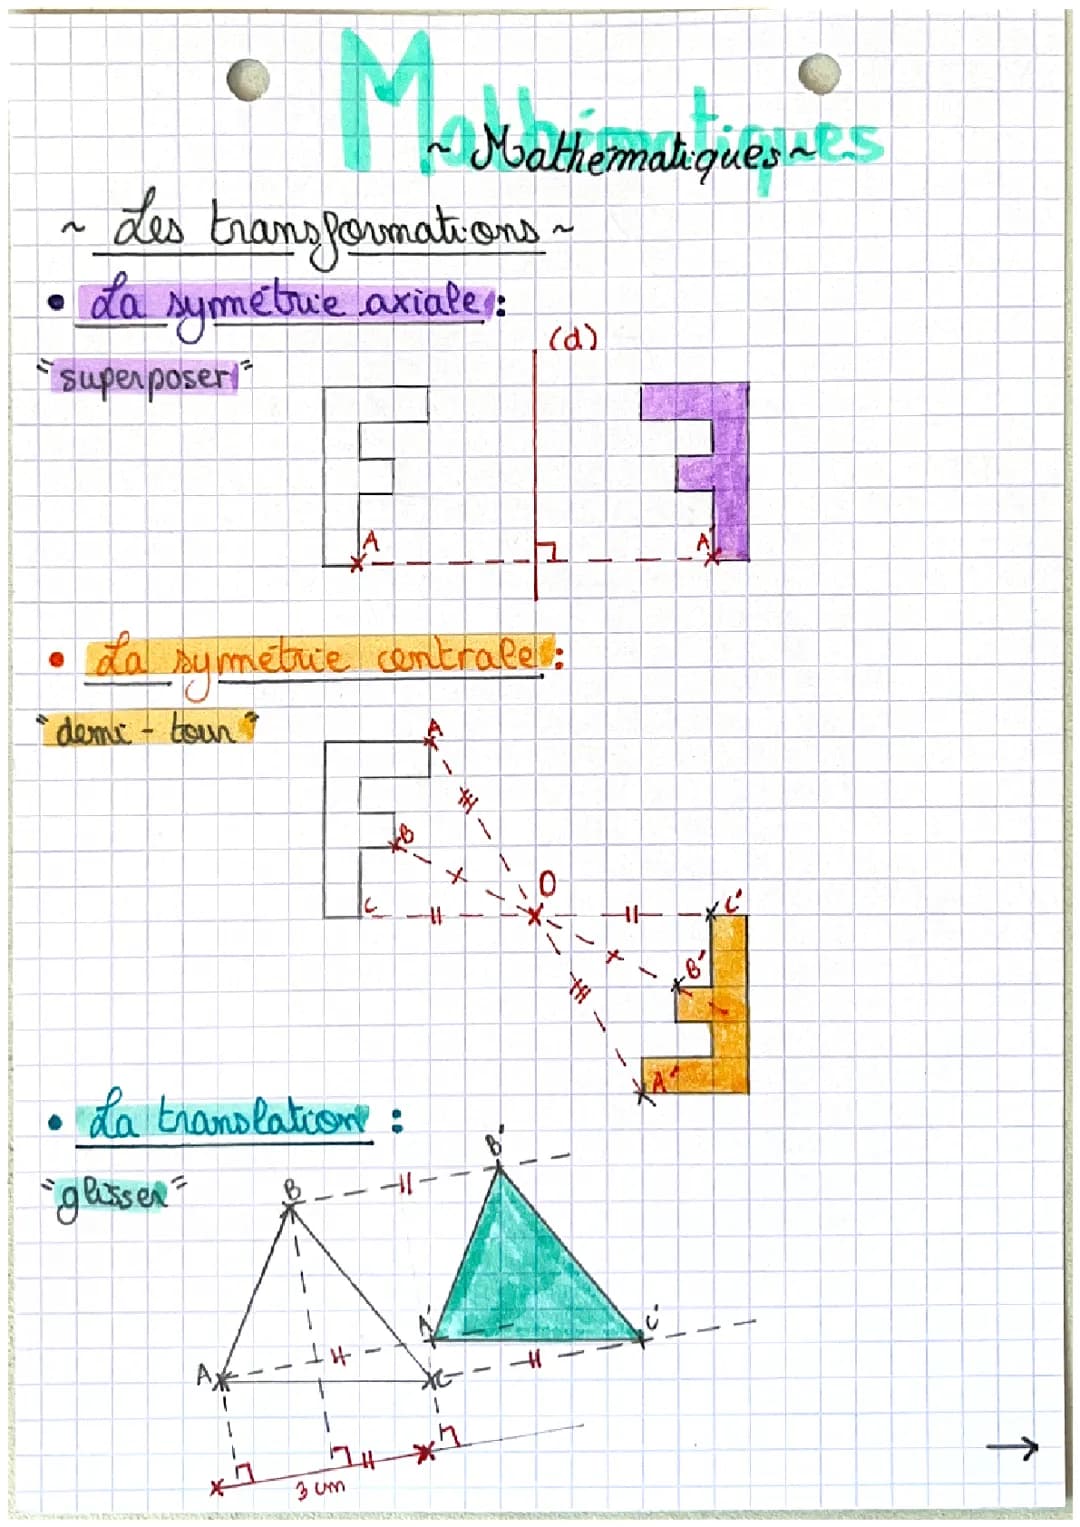 Mathématiques
~ Mathématiques ~
~ Les transformations ~
• La symétrie axiale :
"superposer"
(d)
A
A'
• La symétrie centrale :
"demi-tour"
A
B
C
O
C'
B'
A'
• La translation :
"glisser"
B
B'
A'
C'
A
C
3 cm
→